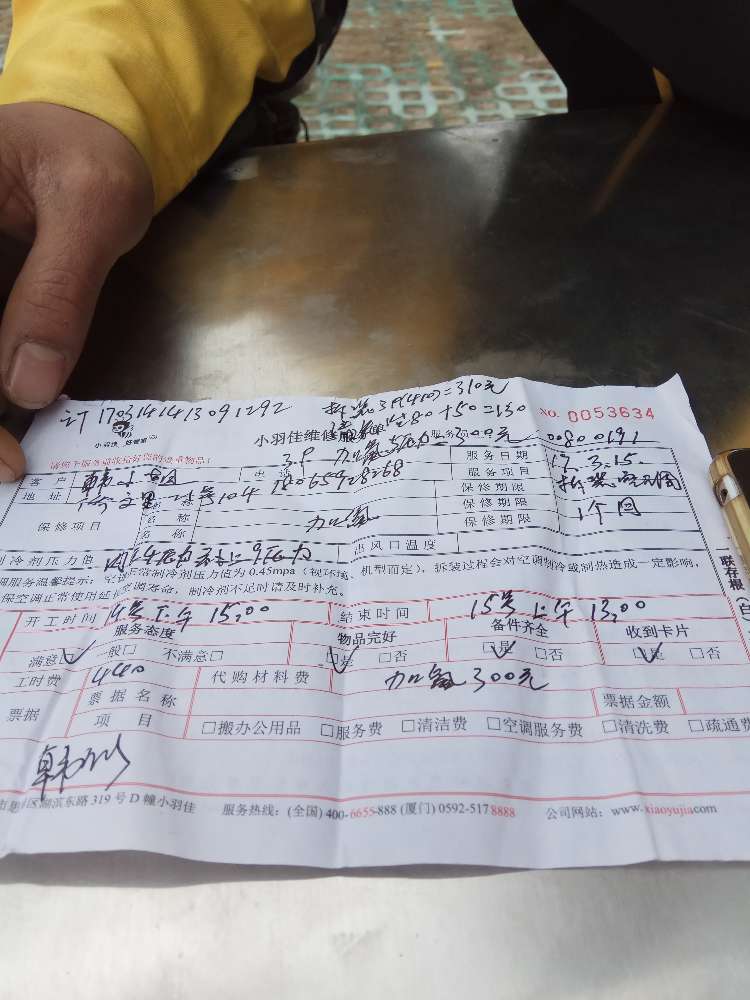 计 170314143091292 拆装3P(410)=310元
小羽佳 好管家 小羽佳维修服务单 80+50=130 NO. 0053634
请您于服务前收拾好您的贵重物品! 3P 加氟 300元 00800191
客户 电话 18065928268 服务日期 17.3.15.
地址 104 名称 服务项目 拆装
保修项目 名称 加氟 保修期限 1个
名称 保修期限
制冷剂压力值 压力 出风口温度
调服务温馨提示:空调 制冷剂压力值为0.45mpa(视环境、机型而定),拆装过程会对空调制冷或制热造成一定影响,
保空调正常使用延长空调寿命,制冷剂不足时请及时补充。
开工时间 14号下午15,00 结束时间 15号上午13,00
服务态度 物品完好 备件齐全 收到卡片
满意☑ 一般□ 不满意□ ☑是 □否 ☑是 □否 ☑是 □否
工时费 440 代购材料费 加氟300元
票据 票据名称 票据金额
项目 □搬办公用品 □服务费 □清洁费 □空调服务费 □清洗费 □疏通费
区湖滨东路319号D幢小羽佳 服务热线:(全国)400-6655-888 (厦门)0592-5178888 公司网站:www.xiaoyujia.com
联存根(白